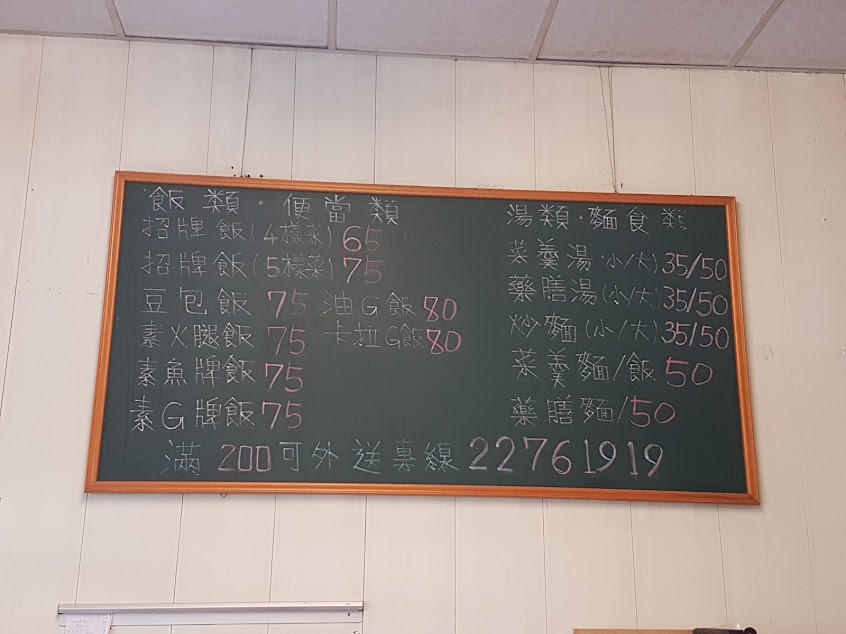 飯類.便當類
招牌飯(4樣菜)65
招牌飯(5樣菜)75
豆包飯 75 油G飯 80
素火腿飯 75 卡拉G飯 80
素魚牌飯 75
素G牌飯 75
湯類.麵食類
菜羹湯(小/大)35/50
藥膳湯(小/大)35/50
炒麵(小/大)35/50
菜羹麵/飯 50
藥膳麵/50
滿200可外送專線22761919